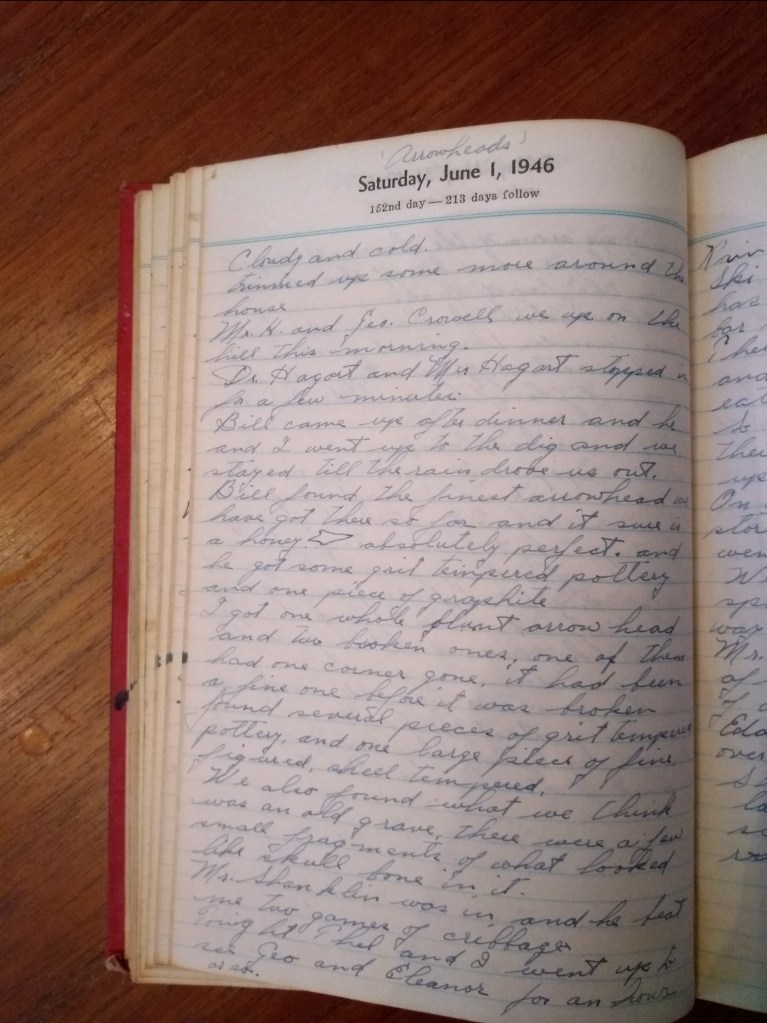 'Arrowheads'
Saturday, June 1, 1946
152nd day — 213 days follow
Cloudy and cold.
trimmed up some more around the
house
Mr. H. and Geo. Crowell we up on the
hill this morning.
Dr. Hagart and Mrs Hagart stopped in
for a few minutes.
Bill came up after dinner and he
and I went up to the dig and we
stayed till the rain drove us out.
Bill found the finest arrowhead we
have got there so far and it sure is
a honey absolutely perfect. and
he got some grit tempered pottery
and one piece of graphite
I got one whole flint arrow head
and two broken ones, one of them
had one corner gone, it had been
a fine one before it was broken
found several pieces of grit tempered
pottery, and one large piece of fine,
figured, shell tempered.
We also found what we think
was an old grave, there were a few
small fragments of what looked
like skull bone in it.
Mr. Shanklin was in, and he beat
me two games of cribbage
tonight Thel and I went up to
see Geo and Eleanor for an hour
or so.
Ski
has
bar
and
eat
up
On
wen
way
Mr.
of
over